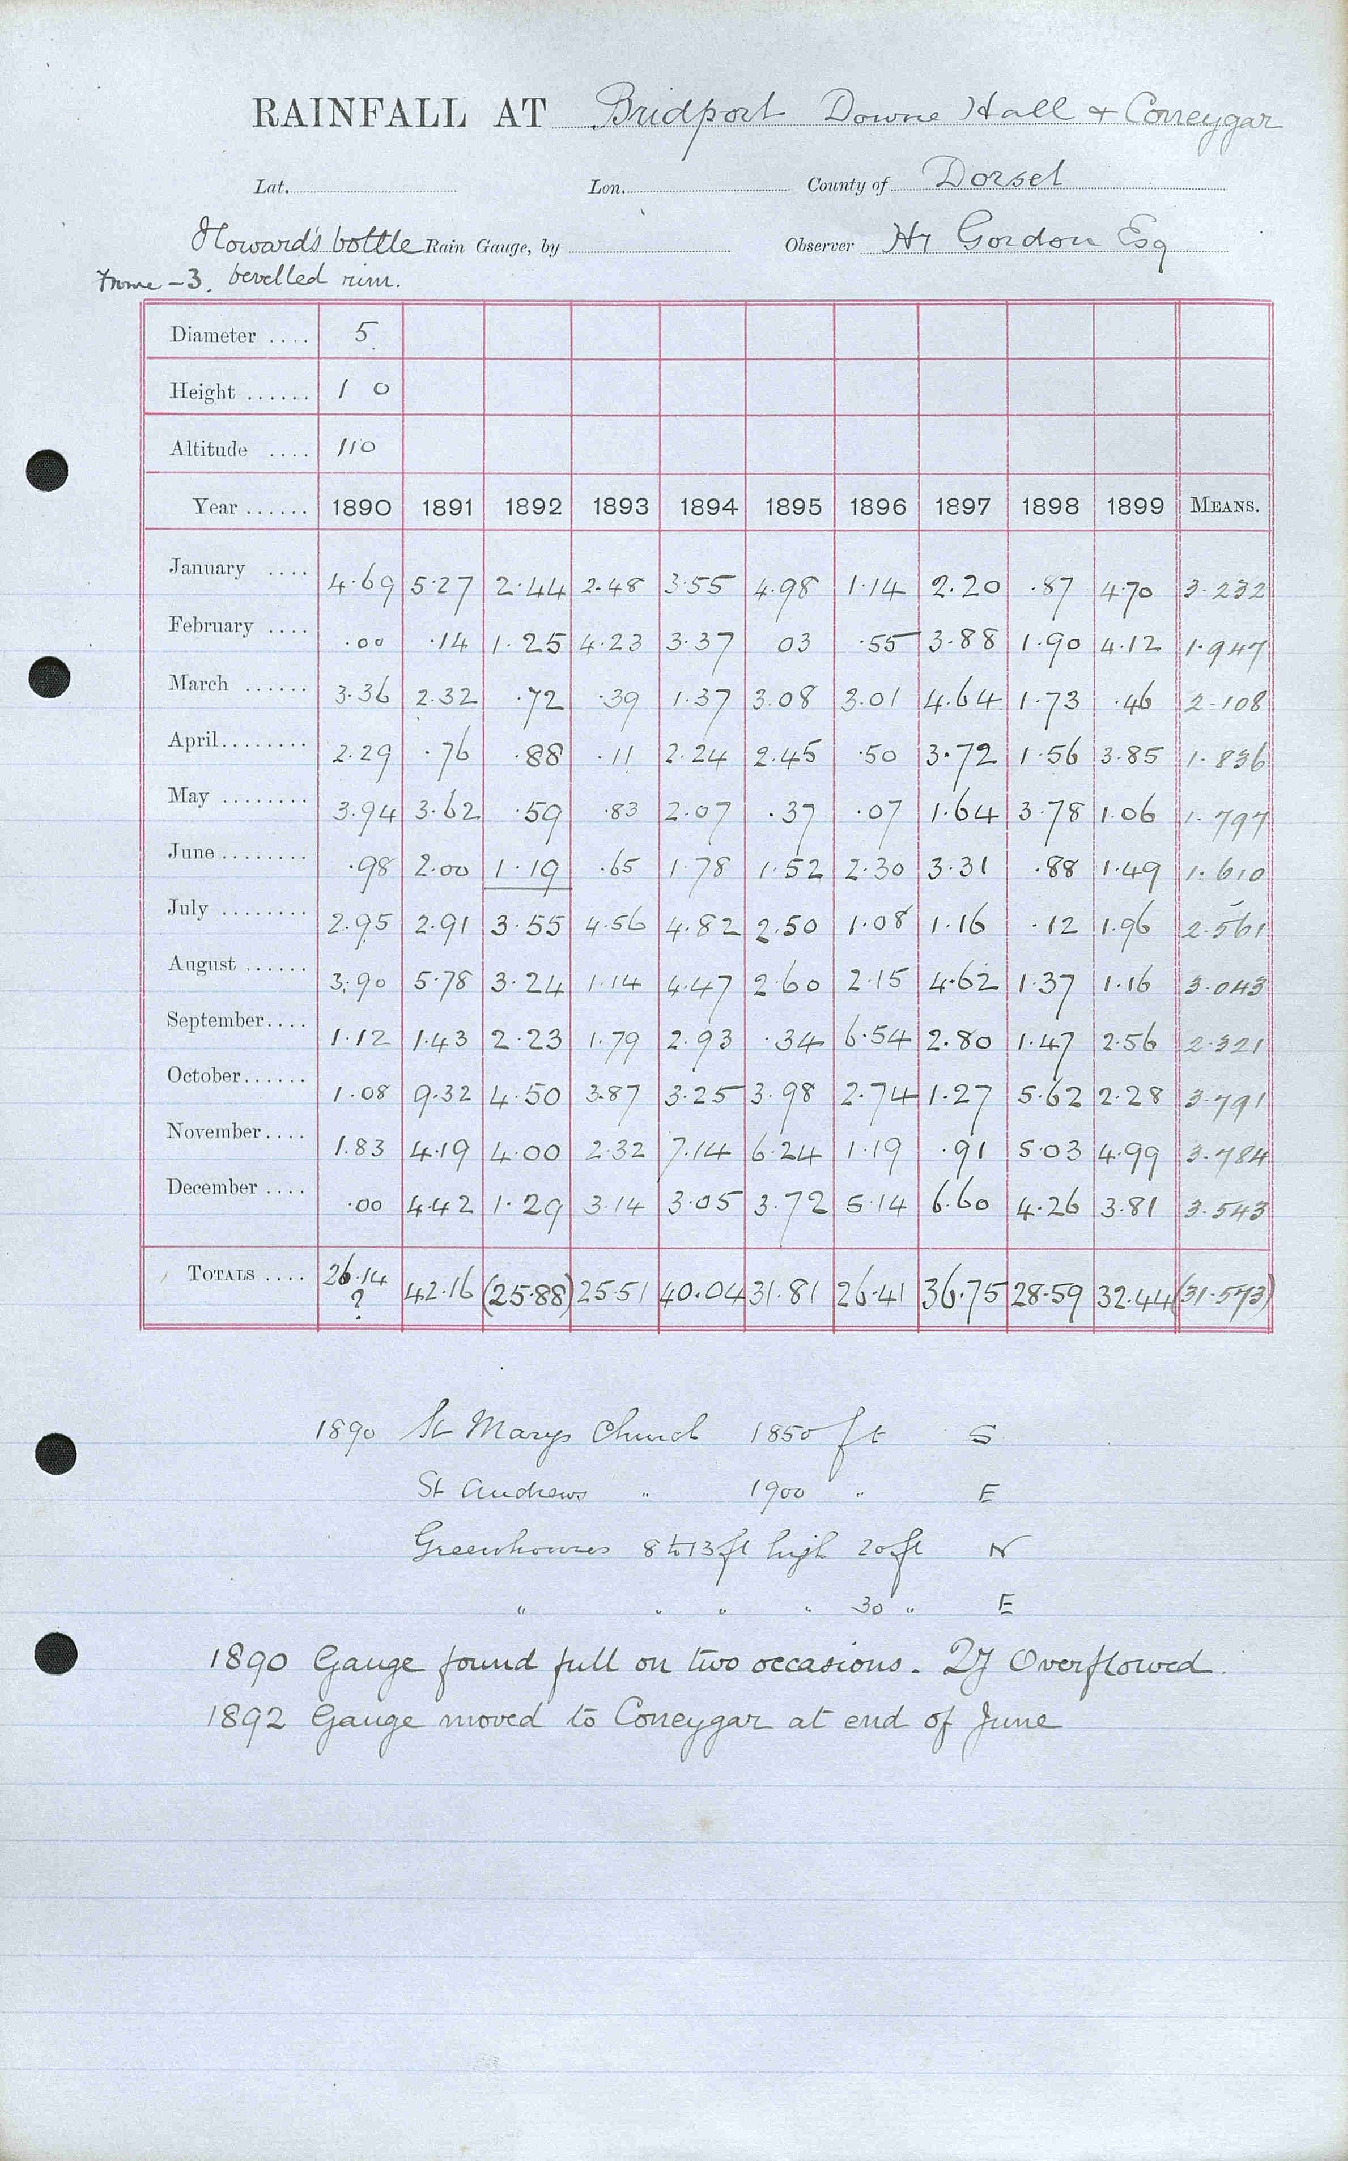 RAINFALL AT Bridport Downe Hall & Coneygar
Lat. Lon. County of Dorset
Howard's bottle Rain Gauge, by Observer Hy Gordon Esq
-3. bevelled rim.
Diameter .... 5
Height ...... 1 0
Altitude .... 110
Year ...... 1890 1891 1892 1893 1894 1895 1896 1897 1898 1899 MEANS.
January .... 4.69 5.27 2.44 2.48 3.55 4.98 1.14 2.20 .87 4.70 3.232
February .... .00 .14 1.25 4.23 3.37 03 .55 3.88 1.90 4.12 1.947
March ...... 3.36 2.32 .72 .39 1.37 3.08 3.01 4.64 1.73 .46 2.108
April........ 2.29 .76 .88 .11 2.24 2.45 .50 3.72 1.56 3.85 1.836
May ........ 3.94 3.62 .59 .83 2.07 .37 .07 1.64 3.78 1.06 1.797
June ........ .98 2.00 1.19 .65 1.78 1.52 2.30 3.31 .88 1.49 1.610
July ........ 2.95 2.91 3.55 4.56 4.82 2.50 1.08 1.16 .12 1.96 2.561
August ...... 3.90 5.78 3.24 1.14 4.47 2.60 2.15 4.62 1.37 1.16 3.043
September.... 1.12 1.43 2.23 1.79 2.93 .34 6.54 2.80 1.47 2.56 2.321
October...... 1.08 9.32 4.50 3.87 3.25 3.98 2.74 1.27 5.62 2.28 3.791
November.... 1.83 4.19 4.00 2.32 7.14 6.24 1.19 .91 5.03 4.99 3.784
December .... .00 4.42 1.29 3.14 3.05 3.72 5.14 6.60 4.26 3.81 3.543
TOTALS .... 26.14 ? 42.16 (25.88) 25.51 40.04 31.81 26.41 36.75 28.59 32.44 (31.573)
1890 St Marys Church 1850 ft S
St Andrews " 1900 " E
Greenhouses 8 to 13 ft high 20 ft N
" " " " 30 " E
1890 Gauge found full on two occasions. ?If Overflowed.
1892 Gauge moved to Coneygar at end of June